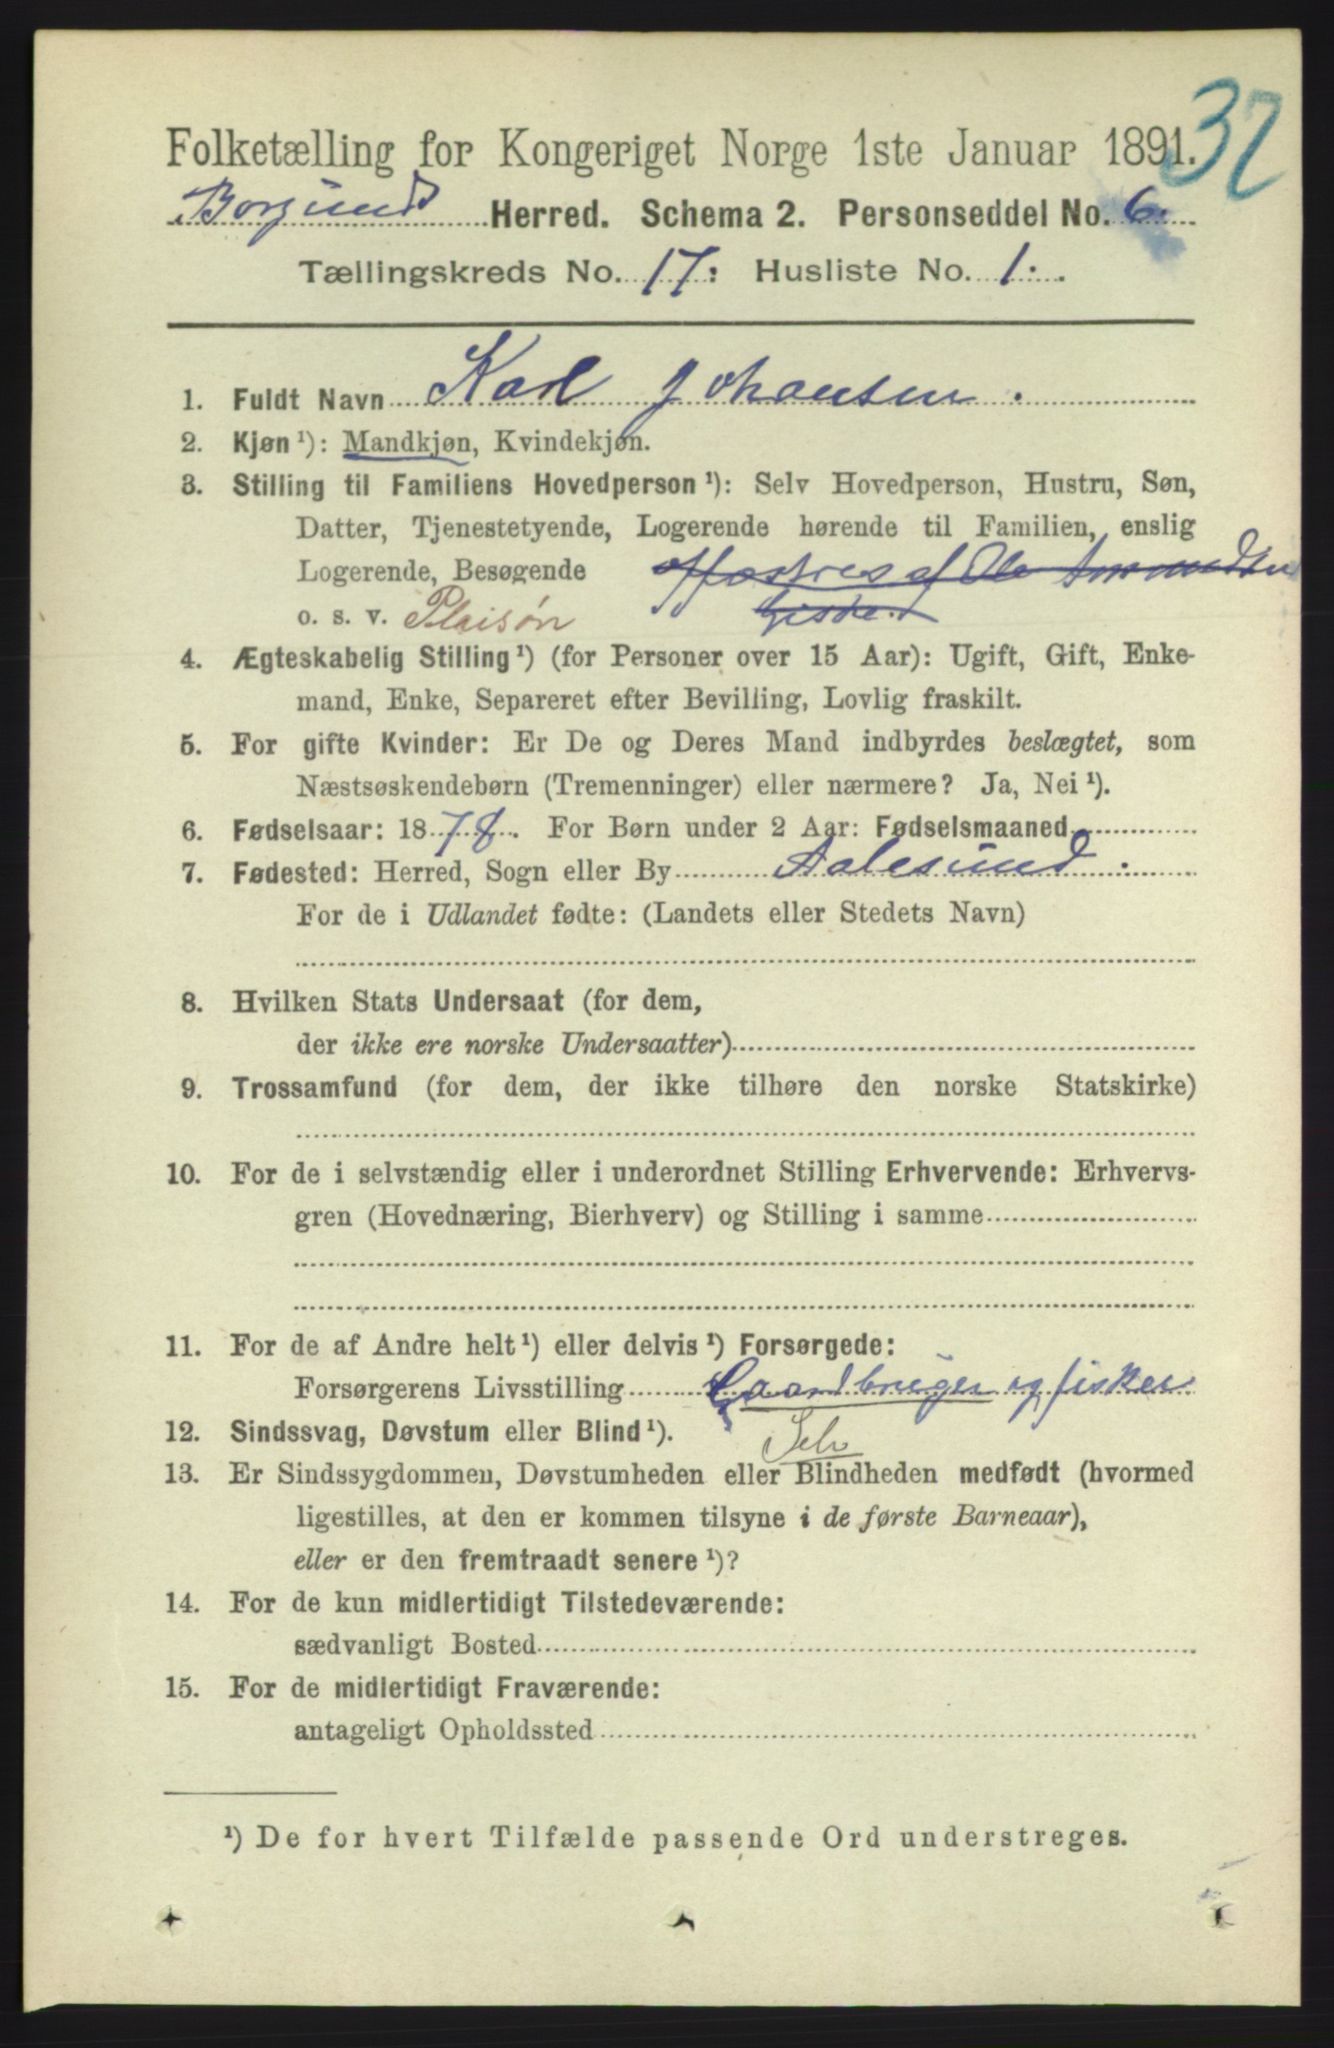 32
Folketælling for Kongeriget Norge 1ste Januar 1891.
Borgund Herred. Schema 2. Personseddel No. 6.
Tællingskreds No. 17: Husliste No. 1.
1. Fuldt Navn Karl Johansen.
2. Kjøn ¹): Mandkjøn, Kvindekjøn.
3. Stilling til Familiens Hovedperson ¹): Selv Hovedperson, Hustru, Søn,
Datter, Tjenestetyende, Logerende hørende til Familien, enslig
Logerende, Besøgende opfostres af Ole
o. s. v. Pleisøn Giske.
4. Ægteskabelig Stilling ¹) (for Personer over 15 Aar): Ugift, Gift, Enke-
mand, Enke, Separeret efter Bevilling, Lovlig fraskilt.
5. For gifte Kvinder: Er De og Deres Mand indbyrdes beslægtet, som
Næstsøskendebørn (Tremenninger) eller nærmere? Ja, Nei ¹).
6. Fødselsaar: 1878. For Børn under 2 Aar: Fødselsmaaned
7. Fødested: Herred, Sogn eller By Aalesund.
For de i Udlandet fødte: (Landets eller Stedets Navn)
8. Hvilken Stats Undersaat (for dem,
der ikke ere norske Undersaatter)
9. Trossamfund (for dem, der ikke tilhøre den norske Statskirke)
10. For de i selvstændig eller i underordnet Stilling Erhvervende: Erhvervs-
gren (Hovednæring, Bierhverv) og Stilling i samme
11. For de af Andre helt ¹) eller delvis ¹) Forsørgede:
Forsørgerens Livsstilling Gaardbruger og fisker
12. Sindssvag, Døvstum eller Blind ¹). Selv
13. Er Sindssygdommen, Døvstumheden eller Blindheden medfødt (hvormed
ligestilles, at den er kommen tilsyne i de første Barneaar),
eller er den fremtraadt senere ¹)?
14. For de kun midlertidigt Tilstedeværende:
sædvanligt Bosted
15. For de midlertidigt Fraværende:
antageligt Opholdssted
¹) De for hvert Tilfælde passende Ord understreges.